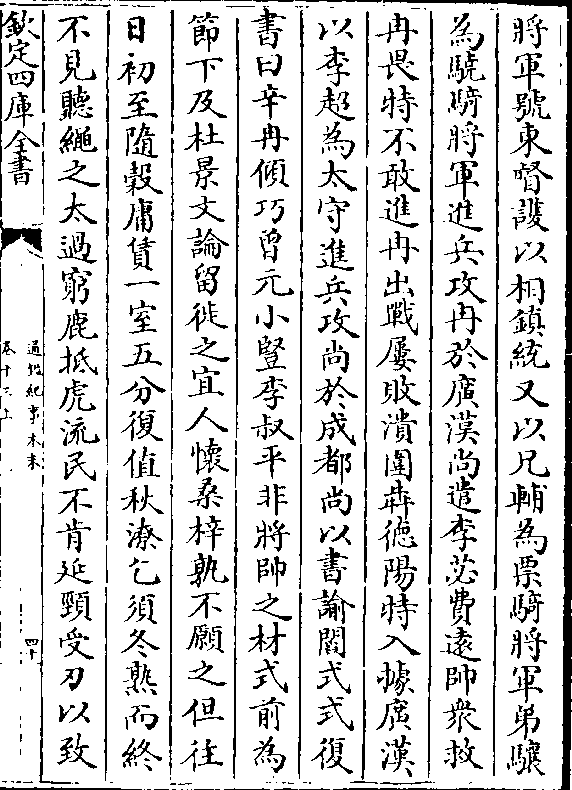 將軍號東督護以相鎮統又以兄輔為票騎將軍弟驤
為驍騎將軍進兵攻冉於廣漢尚遣李苾費遠帥衆救
冉畏特不敢進冉出戰屢敗潰圍犇徳陽特入據廣漢
以李超為太守進兵攻尚於成都尚以書諭閻式式復
書曰辛冉傾巧曾元小豎李叔平非將帥之材式前為
節下及杜景文論留徙之宜人懷桑梓孰不願之但往
日初至隨穀庸賃一室五分復值秋潦乞須冬熟而終
不見聽繩之太過窮鹿抵虎流民不肯延頸受刀以致
欽定四庫全書
通鑑紀事本末
卷十三上
四十